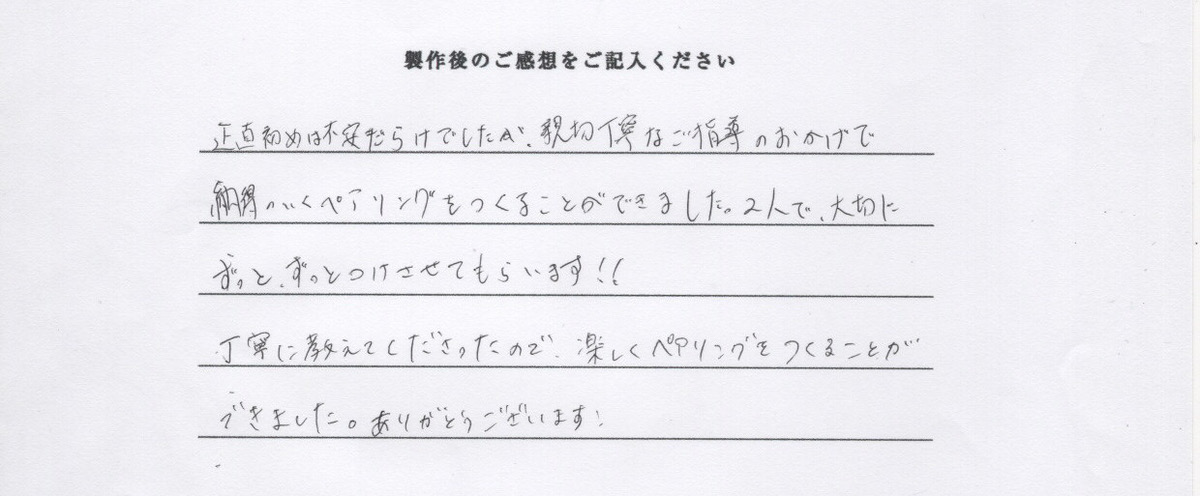 製作後のご感想をご記入ください
正直初めは不安だらけでしたが、親切丁寧なご指導のおかげで
納得のいくペアリングをつくることができました。2人で、大切に
ずっと、ずっとつけさせてもらいます!!
丁寧に教えてくださったので、楽しくペアリングをつくることが
できました。ありがとうございます!